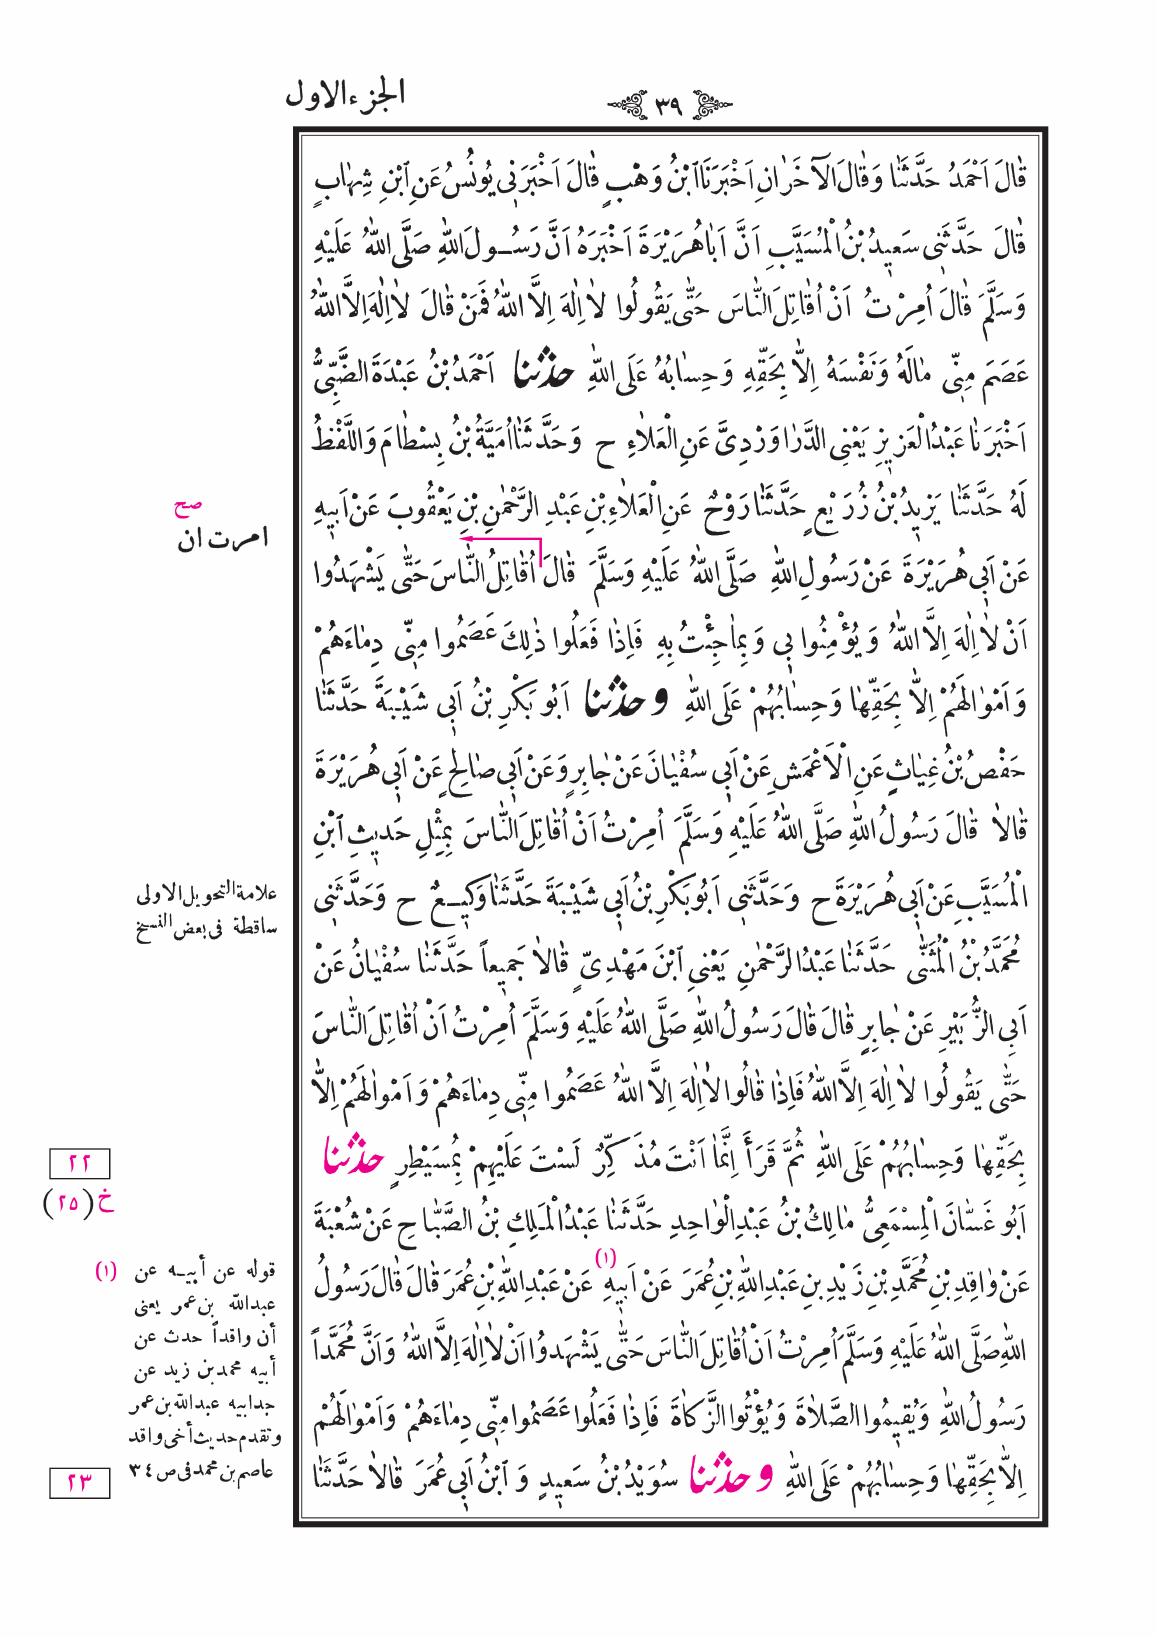 الجزء الاول
٣٩
قَالَ اَحْمَدُ حَدَّثَنَا وَقَالَ الآخَرَانِ اَخْبَرَنَا ابْنُ وَهْبٍ قَالَ اَخْبَرَنِي يُونُسُ عَنِ ابْنِ شِهَابٍ
قَالَ حَدَّثَنِي سَعِيدُ بْنُ الْمُسَيَّبِ اَنَّ اَبَا هُرَيْرَةَ اَخْبَرَهُ اَنَّ رَسُولَ اللهِ صَلَّى اللهُ عَلَيْهِ
وَسَلَّمَ قَالَ اُمِرْتُ اَنْ اُقَاتِلَ النَّاسَ حَتَّى يَقُولُوا لَا اِلٰهَ اِلَّا اللهُ فَمَنْ قَالَ لَا اِلٰهَ اِلَّا اللهُ
عَصَمَ مِنِّي مَالَهُ وَنَفْسَهُ اِلَّا بِحَقِّهِ وَحِسَابُهُ عَلَى اللهِ حدثنا اَحْمَدُ بْنُ عَبْدَةَ الضَّبِّيُّ
اَخْبَرَنَا عَبْدُ الْعَزِيزِ يَعْنِي الدَّرَاوَرْدِيَّ عَنِ الْعَلَاءِ ح وَحَدَّثَنَا اُمَيَّةُ بْنُ بِسْطَامَ وَاللَّفْظُ
لَهُ حَدَّثَنَا يَزِيدُ بْنُ زُرَيْعٍ حَدَّثَنَا رَوْحٌ عَنِ الْعَلَاءِ بْنِ عَبْدِ الرَّحْمٰنِ بْنِ يَعْقُوبَ عَنْ اَبِيهِ
صح
امرت ان
عَنْ اَبِي هُرَيْرَةَ عَنْ رَسُولِ اللهِ صَلَّى اللهُ عَلَيْهِ وَسَلَّمَ قَالَ اُقَاتِلُ النَّاسَ حَتَّى يَشْهَدُوا
اَنْ لَا اِلٰهَ اِلَّا اللهُ وَيُؤْمِنُوا بِي وَبِمَا جِئْتُ بِهِ فَاِذَا فَعَلُوا ذٰلِكَ عَصَمُوا مِنِّي دِمَاءَهُمْ
وَاَمْوَالَهُمْ اِلَّا بِحَقِّهَا وَحِسَابُهُمْ عَلَى اللهِ وحدثنا اَبُو بَكْرِ بْنُ اَبِي شَيْبَةَ حَدَّثَنَا
حَفْصُ بْنُ غِيَاثٍ عَنِ الْاَعْمَشِ عَنْ اَبِي سُفْيَانَ عَنْ جَابِرٍ وَعَنْ اَبِي صَالِحٍ عَنْ اَبِي هُرَيْرَةَ
قَالَا قَالَ رَسُولُ اللهِ صَلَّى اللهُ عَلَيْهِ وَسَلَّمَ اُمِرْتُ اَنْ اُقَاتِلَ النَّاسَ بِمِثْلِ حَدِيثِ ابْنِ
الْمُسَيَّبِ عَنْ اَبِي هُرَيْرَةَ ح وَحَدَّثَنِي اَبُو بَكْرِ بْنُ اَبِي شَيْبَةَ حَدَّثَنَا وَكِيعٌ ح وَحَدَّثَنِي
علامة التحويل الاولى
ساقطة فى بعض النسخ
مُحَمَّدُ بْنُ الْمُثَنَّى حَدَّثَنَا عَبْدُ الرَّحْمٰنِ يَعْنِي ابْنَ مَهْدِيٍّ قَالَا جَمِيعاً حَدَّثَنَا سُفْيَانُ عَنْ
اَبِي الزُّبَيْرِ عَنْ جَابِرٍ قَالَ قَالَ رَسُولُ اللهِ صَلَّى اللهُ عَلَيْهِ وَسَلَّمَ اُمِرْتُ اَنْ اُقَاتِلَ النَّاسَ
حَتَّى يَقُولُوا لَا اِلٰهَ اِلَّا اللهُ فَاِذَا قَالُوا لَا اِلٰهَ اِلَّا اللهُ عَصَمُوا مِنِّي دِمَاءَهُمْ وَاَمْوَالَهُمْ اِلَّا
بِحَقِّهَا وَحِسَابُهُمْ عَلَى اللهِ ثُمَّ قَرَأَ اِنَّمَا اَنْتَ مُذَكِّرٌ لَسْتَ عَلَيْهِمْ بِمُسَيْطِرٍ حدثنا
٢٢
خ (٢٥)
اَبُو غَسَّانَ الْمِسْمَعِيُّ مَالِكُ بْنُ عَبْدِ الْوَاحِدِ حَدَّثَنَا عَبْدُ الْمَلِكِ بْنُ الصَّبَّاحِ عَنْ شُعْبَةَ
عَنْ وَاقِدِ بْنِ مُحَمَّدِ بْنِ زَيْدِ بنِ عَبْدِ اللهِ بْنِ عُمَرَ عَنْ اَبِيهِ (١) عَنْ عَبْدِ اللهِ بْنِ عُمَرَ قَالَ قَالَ رَسُولُ
اللهِ صَلَّى اللهُ عَلَيْهِ وَسَلَّمَ اُمِرْتُ اَنْ اُقَاتِلَ النَّاسَ حَتَّى يَشْهَدُوا اَنْ لَا اِلٰهَ اِلَّا اللهُ وَاَنَّ مُحَمَّداً
رَسُولُ اللهِ وَيُقِيمُوا الصَّلَاةَ وَيُؤْتُوا الزَّكَاةَ فَاِذَا فَعَلُوا عَصَمُوا مِنِّي دِمَاءَهُمْ وَاَمْوَالَهُمْ
اِلَّا بِحَقِّهَا وَحِسَابُهُمْ عَلَى اللهِ وحدثنا سُوَيْدُ بْنُ سَعِيدٍ وَابْنُ اَبِي عُمَرَ قَالَا حَدَّثَنَا
(١) قوله عن أبيه عن
عبدالله بن عمر يعنى
أن واقداً حدث عن
أبيه محمد بن زيد عن
جد ابيه عبدالله بن عمر
وتقدم حديث أخى واقد
عاصم بن محمد فى ص ٣٤
٢٣